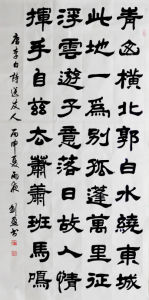 青山橫北郭白水繞東城
此地一為別孤蓬萬里征
浮雲遊子意落日故人情
揮手自茲去蕭蕭班馬鳴
唐李白詩送友人 丙申夏雨 劉 書